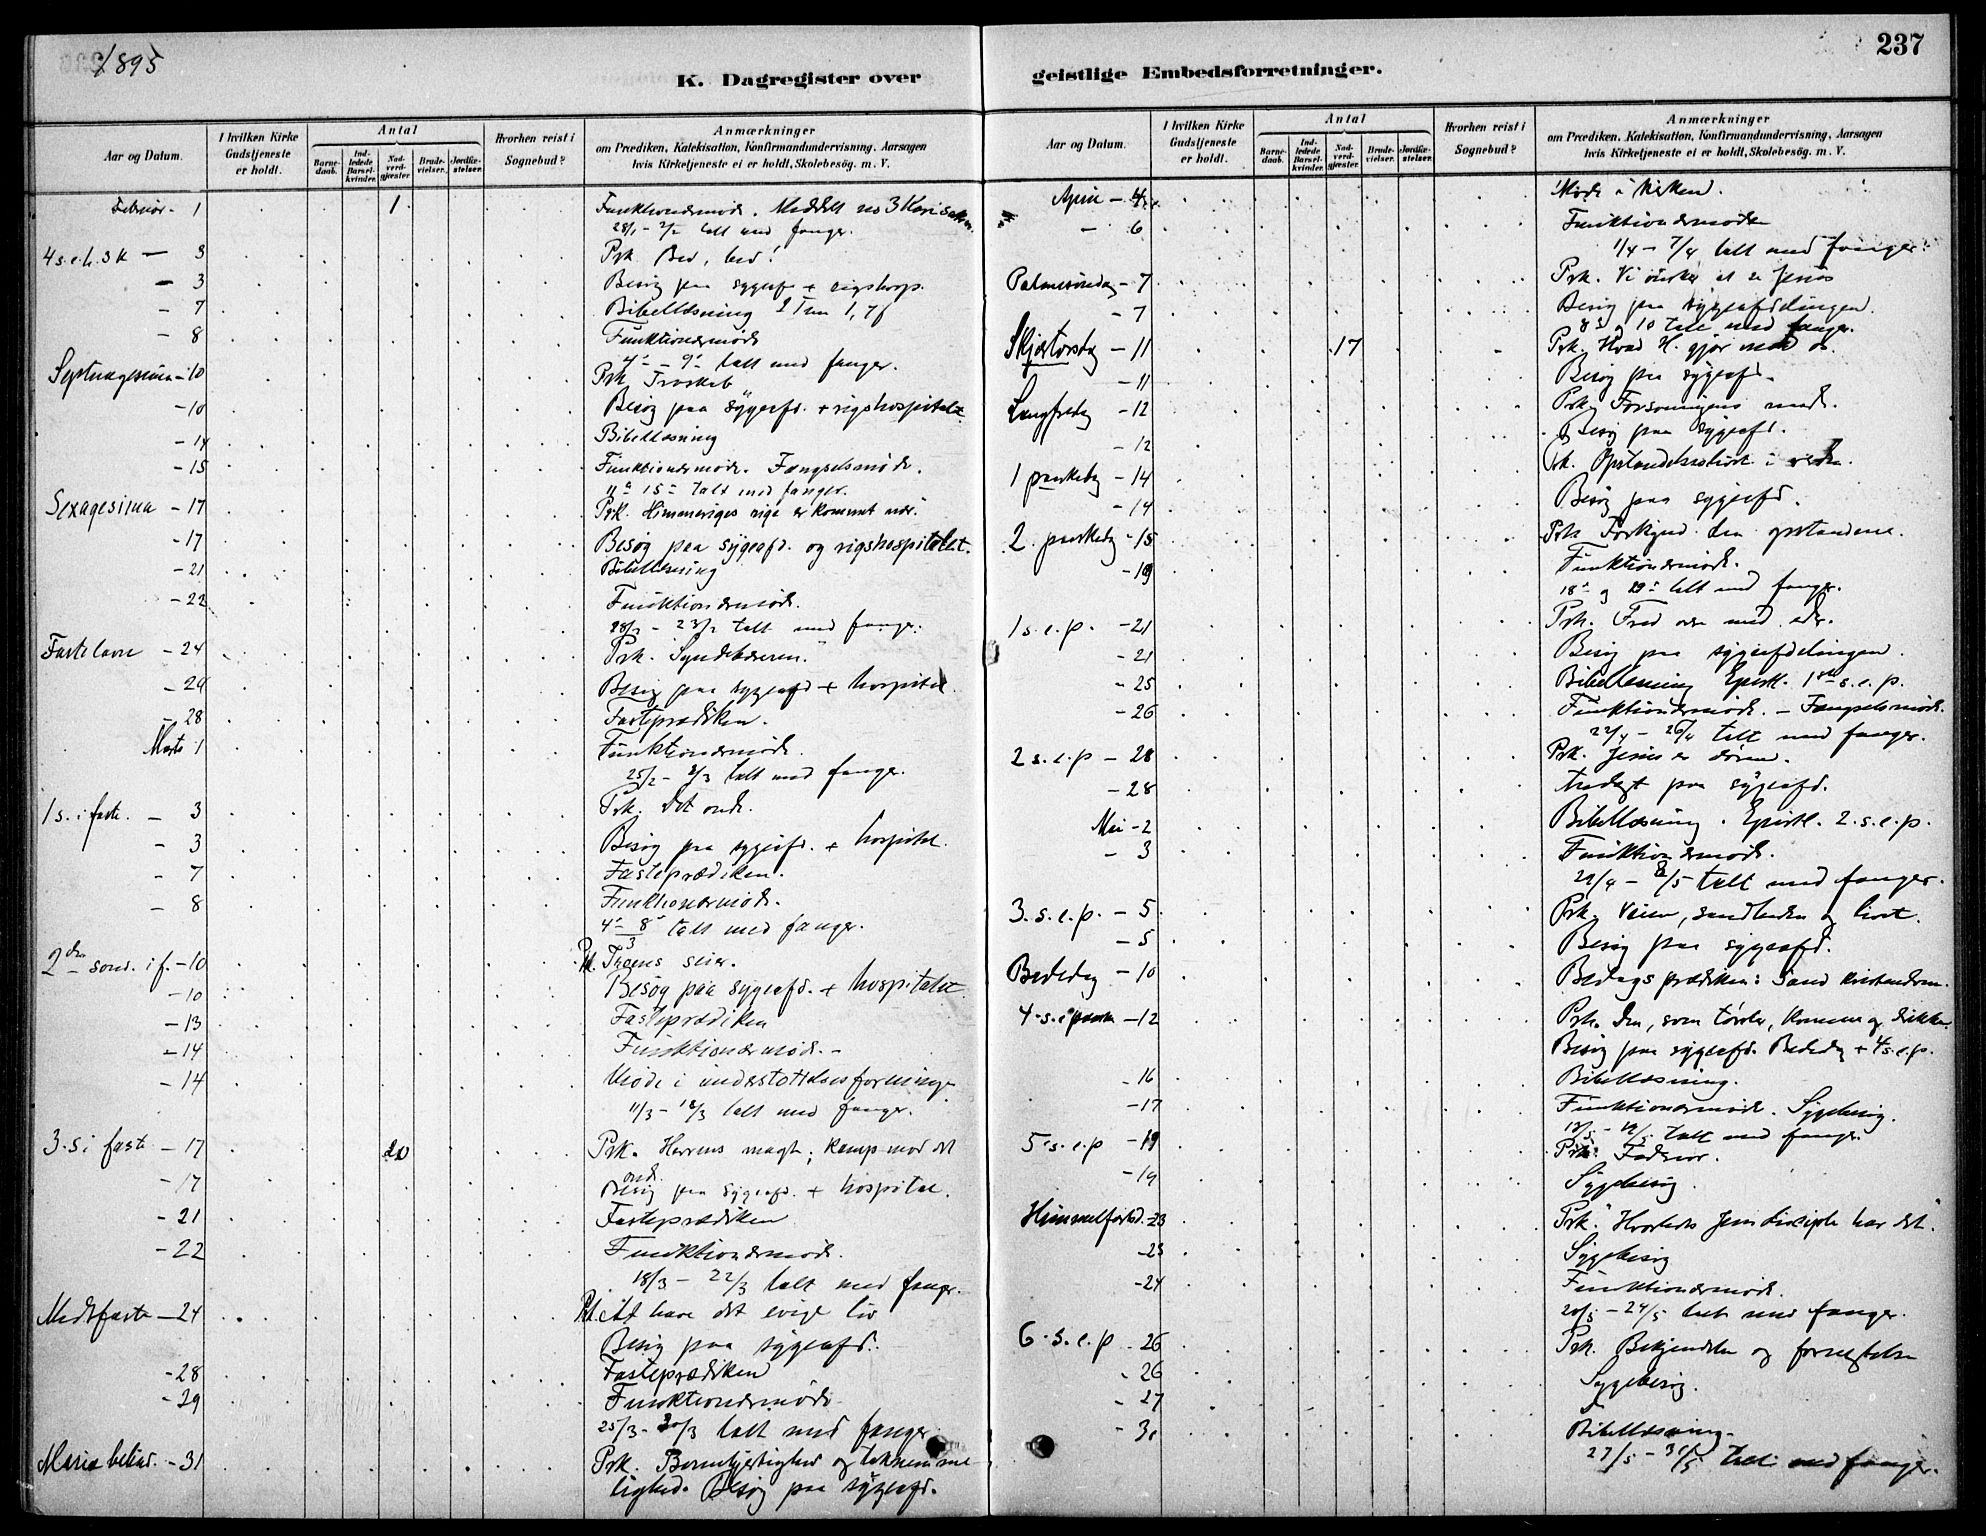 1895
237
K. Dagregister over
geistlige Embedsforretninger.
Aar og Datum.
I hvilken Kirke Gudstjeneste er holdt.
Antal
Barne-daab.
Ind-ledede Barsel-kvinder.
Nad-verd-gjæster.
Brude-vielser.
Jordfæ-stelser.
Hvorhen reist i Sognebud?
Anmærkninger
om Prædiken, Katekisation, Konfirmandundervisning, Aarsagen
hvis Kirketjeneste ei er holdt, Skolebesøg. m. V.
Februar - 1 1 Funktionærmøde. Meddelt no 3
28/1 - 2/2 talt med fanger.
4 s.e.h.3k - 3 Prk Bed, bed!
- 3 Besøg paa sygeafd + rigshosp.
- 7 Bibellæsning 2 Tim 1, 7f
- 8 Funktionærmøde
4de - 9de talt med fanger.
Septuagesima - 10 Prk Troskab
- 10 Besøg paa sygeafd. + rigshospitalet
- 14 Bibellæsning
- 15 Funktionærmøde. Fængselsmøde.
11te 15te talt med fanger.
Sexagesima - 17 Prk. Himmeriges rige er kommet nær.
- 17 Besøg paa sygeafd. og rigshospitalet.
- 21 Bibellæsning
- 22 Funktionærmøde.
- 23/2 talt med fanger.
Fastelavn - 24 Prk. Syndebæreren.
- 24 Besøg paa sygeafd + hospital.
- 28 Fasteprædiken.
Marts 1 Funktionærmøde.
25/2 - 2/3 talt med fanger.
1 s. i faste. - 3 Prk. Det onde.
- 3 Besøg paa sygeafd. + hospital.
- 7 Fasteprædiken.
- 8 Funktionærmøde.
4 - 8/3 talt med fanger.
2den sønd. i f. - 10 Prk. Troens seier.
- 10 Besøg paa sygeafd. + hospitalet
- 13 Fasteprædiken
- 14 Funktionærmøde. -
- 14 Møde i understøttelsesforeningen
11/3 - talt med fanger.
3. s. i faste - 17 20 Prk. Herrens magt; kamp mod det
onde.
- 17 Besøg paa sygeafd. + hospital.
- 21 Fasteprædiken
- 22 Funktionærmøde.
18/3 - 22/3 talt med fanger.
Midtfaste - 24 Prk. At have det evige liv
Besøg paa sygeafd.
- 28 Fasteprædiken
- 29 Funktionærmøde
25/3 - 30/3 talt med fanger
Mariæ bebud. - 31 Prk. Barmhjertighed og taknemme
lighed. Besøg paa sygeafd.
Aar og Datum.
I hvilken Kirke Gudstjeneste er holdt.
Antal
Barne-daab.
Ind-ledede Barsel-kvinder.
Nad-verd-gjæster.
Brude-vielser.
Jordfæ-stelser.
Hvorhen reist i Sognebud?
Anmærkninger
om Prædiken, Katekisation, Konfirmandundervisning, Aarsagen
hvis Kirketjeneste ei er holdt, Skolebesøg. m. V.
April - 4 Møde i kirken.
- 6 Funktionærmøde
1/4 - 7/4 talt med fanger.
Palmesøndag - 7 Prk. Vi ønsker at se Jesus
- 7 Besøg paa sygeafdelingen.
8de og 10 talt med fanger.
Skjærtorsdag - 11 17 Prk. Hvad H. gjør med os.
- 11 Besøg paa sygeafd.
Langfredag - 12 Prk. Forsoningens
- 12 Besøg paa sygeafd.
1 paaskedag - 14 Prk. i
- 14 Besøg paa sygeafd.
2. paaskedag - 15 Prk Forkynd den opstandene.
- 19 Funktionærmøde.
18de og talt med fanger.
1 s.e.p. - 21 Prk. Fred være med eder.
- 21 Besøg paa sygeafdelingen.
- 25 Bibellæsning Epistl. 1ste s.e.p.
- 26 Funktionærmøde. - Fængselsmøde.
22/4 - 26/4 talt med fanger.
2 s.e.p - 28 Prk. Jesus er døren.
- 28 Andagt paa sygeafd.
Mai - 2 Bibellæsning. Epistl. 2. s.e.p.
- 3 Funktionærmøde.
29/4 - /5 talt med fanger.
3. s.e.p. - 5 Prk. Veien, sandheden og livet.
- 5 Besøg paa sygeafd.
Bededag - 10 Bededags prædiken: Sand kristendom.
4 - s. e paaske - 12 Prk. Den, som tørster, komme og drikke.
Besøg paa sygeafd. Bededag + 4 s.e.p.
- 16 Bibellæsning.
- 17 Funktionærmøde. Sygebesøg.
talt med fanger.
5 s.e.p - 19 Prk. Fadervor.
- 19 Sygebesøg.
Himmelfartsd. - 23 Prk. "Hvorledes Jesu disciple har det".
- 23 Sygebesøg
- 24 Funktionærmøde.
20/5 - 24/5 talt med fanger.
6. s.e.p - 26 Prk. Bekjendelse og fornegtelse
- 26 Sygebesøg.
- 27
- 30 Bibellæsning.
27/5 - 31/5 talt med fanger.